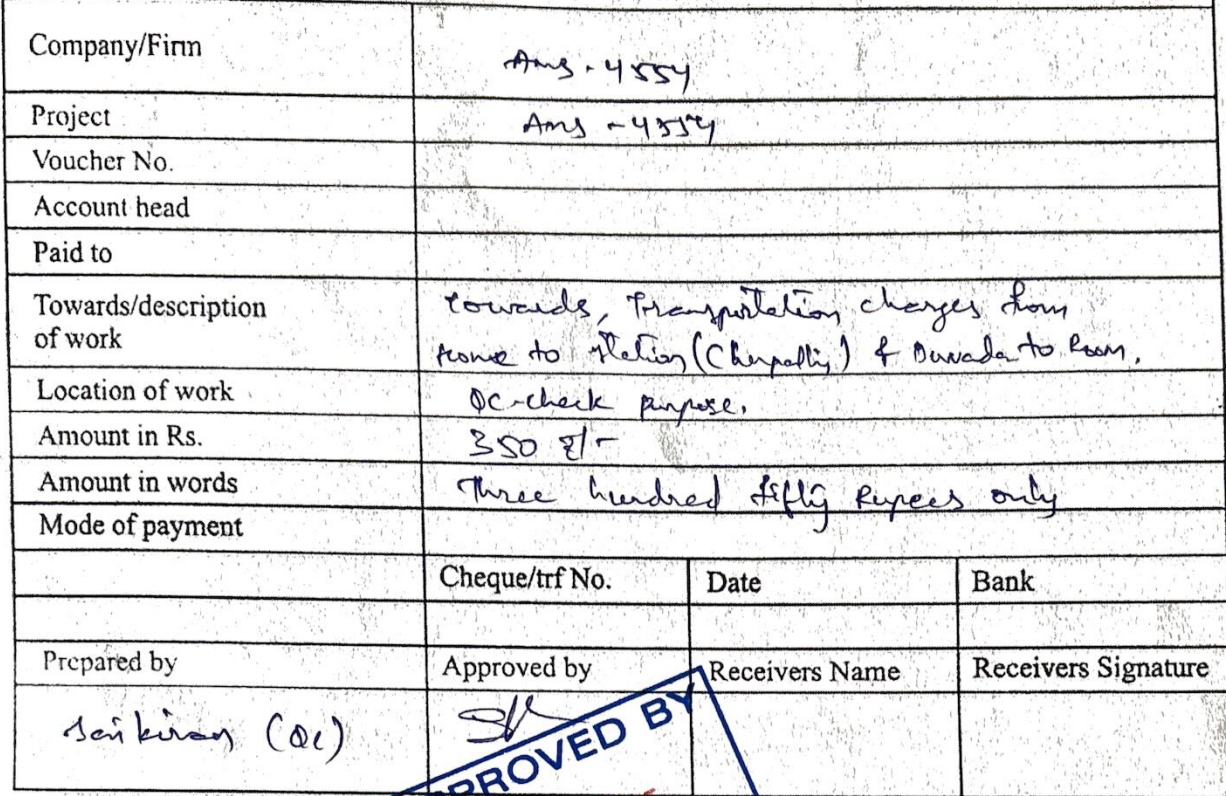 Company/Firm Ams - 4554
Project Ams - 4554
Voucher No.
Account head
Paid to
Towards/description of work
towards, Transportation charges from
home to station (Cherpally) & Duvada to Room.
Location of work QC-check purpose.
Amount in Rs. 350 ₹/-
Amount in words Three hundred fifty Rupees only
Mode of payment
Cheque/trf No. Date Bank
Prepared by Approved by Receivers Name Receivers Signature
Sai kiran (QC)
APPROVED BY